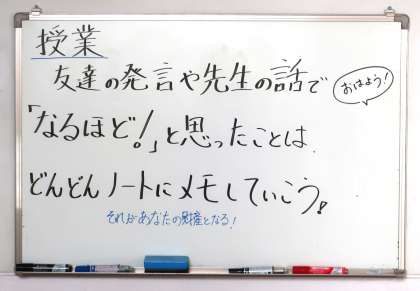 授業
友達の発言や先生の話で
おはよう!
「なるほど!」と思ったことは
どんどんノートにメモしていこう!
それがあなたの財産となる!